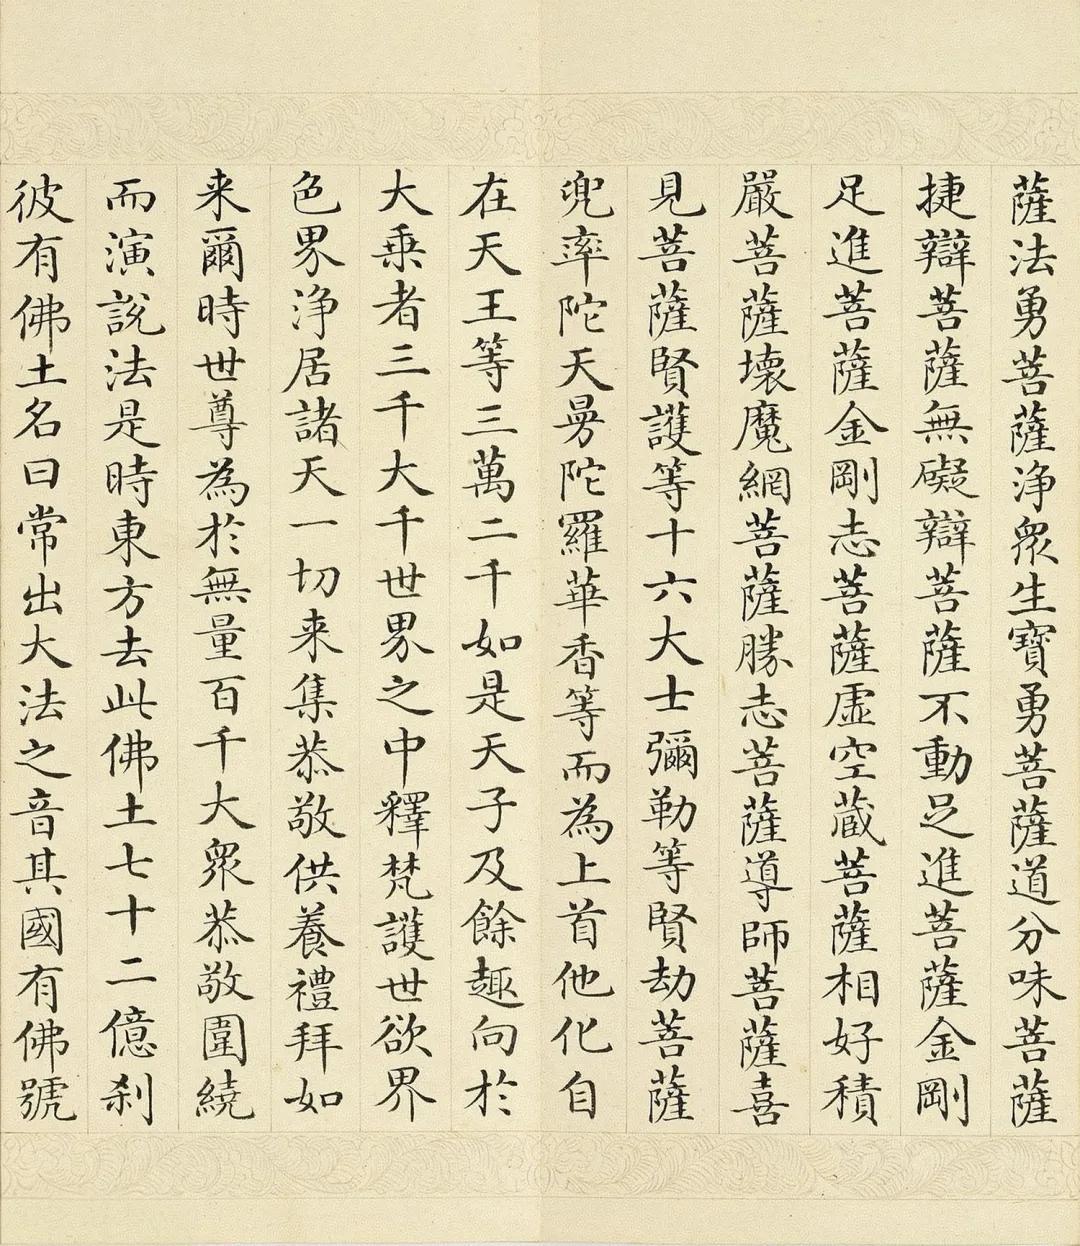 薩法勇菩薩浄衆生寶勇菩薩道分味菩薩
捷辯菩薩無礙辯菩薩不動足進菩薩金剛
足進菩薩金剛志菩薩虛空藏菩薩相好積
嚴菩薩壞魔網菩薩勝志菩薩導師菩薩喜
見菩薩賢護等十六大士彌勒等賢劫菩薩
兜率陀天曼陀羅華香等而為上首他化自
在天王等三萬二千如是天子及餘趣向於
大乗者三千大千世界之中釋梵護世欲界
色界浄居諸天一切来集恭敬供養禮拜如
来爾時世尊為於無量百千大衆恭敬圍繞
而演説法是時東方去此佛土七十二億刹
彼有佛土名曰常出大法之音其國有佛號